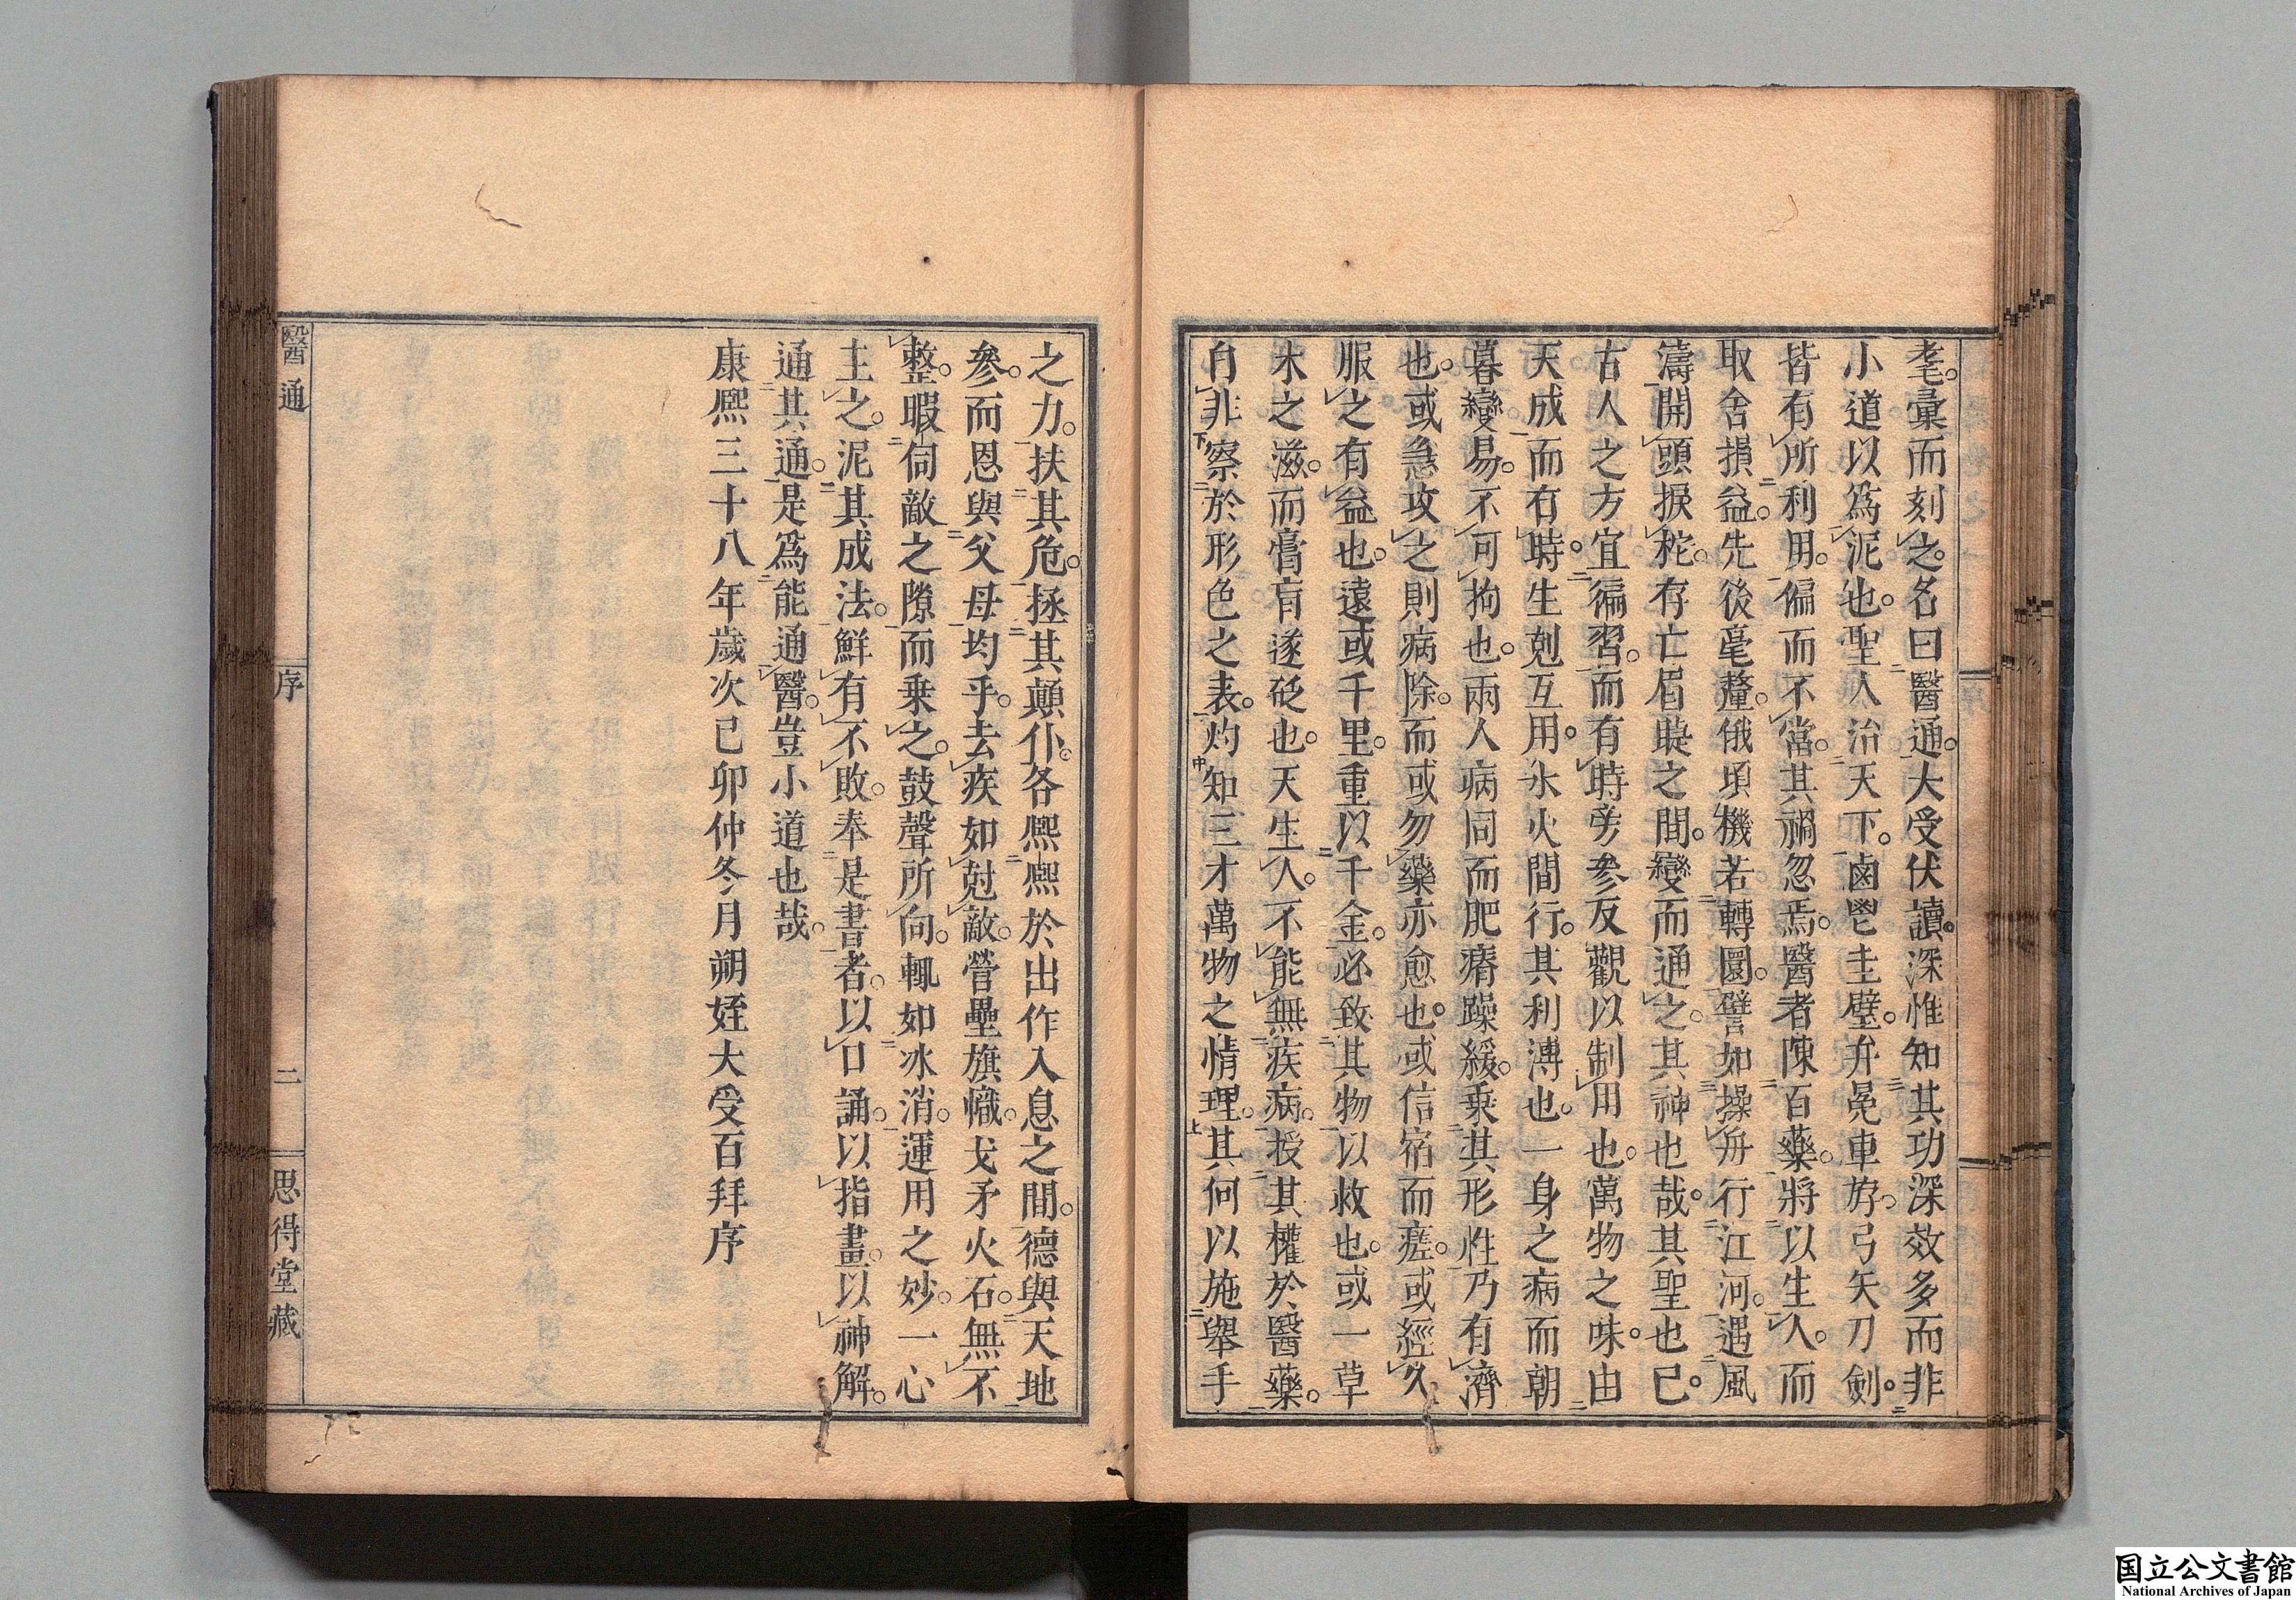 耄彚而刻之名曰醫通大受伏讀深惟知其功深效多而非
小道以爲泥也聖人治天下鹵鬯圭璧弁冕車斿弓矢刀劍
皆有所利用偏而不當其禍忽焉醫者陳百藥將以生人而
取舍損益先後毫釐俄頃機若轉圜譬如操舟行江河遇風
濤開頭捩柁存亡眉睫之間變而通之其神也哉其聖也已
古人之方宜徧習而有時旁參反觀以制用也萬物之味由
天成而有時生剋互用水火間行其利溥也一身之病而朝
暮變易不可拘也兩人病同而肥瘠躁緩乗其形性乃有濟
也或急攻之則病除而或勿藥亦愈也或信宿而瘥或經久
服之有益也遠或千里重以千金必致其物以救也或一草
木之滋而膏肓遂砭也天生人不能無疾病授其權於醫藥
自非察於形色之表灼知三才萬物之情理其何以施舉手
之力扶其危拯其顛仆各熙熙於出作入息之間德與天地
參而恩與父母均乎去疾如尅敵營壘旗幟戈矛火石無不
整暇伺敵之隙而乗之鼓聲所向輒如冰消運用之妙一心
主之泥其成法鮮有不敗奉是書者以口誦以指畫以神解
通其通是爲能通醫豈小道也哉
康熙三十八年歲次已卯仲冬月朔姪大受百拜序
醫通
序
二
思得堂藏
国立公文書館
National Archives of Japan